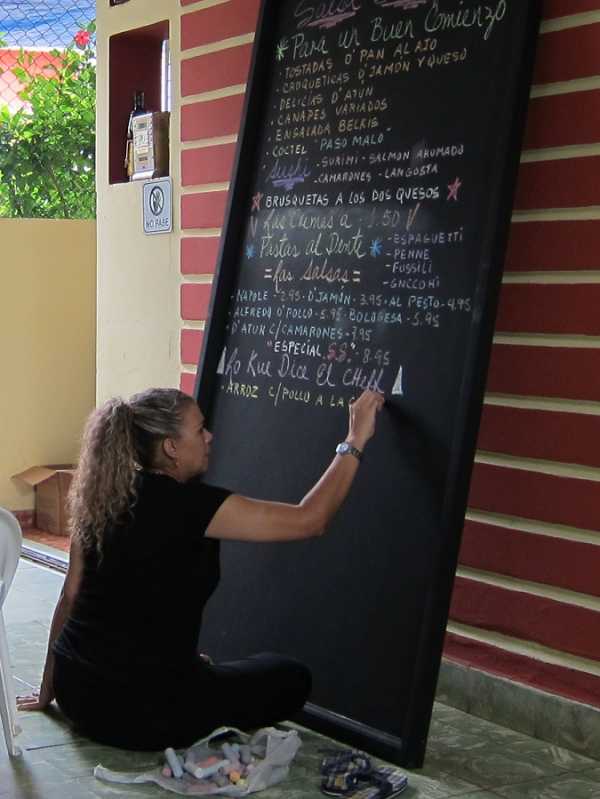 Para un Buen Comienzo
• TOSTADAS D'PAN AL AJO
• CROQUETICAS D'JAMÓN Y QUESO
• DELICIAS D'ATUN
• CANAPES VARIADOS
• ENSALADA BELKIS
• COCTEL "PASO MALO"
Sushi - SURIMI - SALMON AHUMADO
- CAMARONES - LANGOSTA
BRUSQUETAS A LOS DOS QUESOS
a 1.50
Pastas al Dente
- ESPAGUETTI
- PENNE
- FUSSILI
- GNCCOHI
= Las Salsas =
• NAPOLE - 2.95 • D'JAMÓN - 3.95 • AL PESTO - 4.95
• ALFREDO D'POLLO - 5.95 • BOLOGESA - 5.95
• D'ATUN C/CAMARONES - 7.95
"ESPECIAL S.S." - 8.95
Lo Kue Dice El Cheff
• ARROZ C/POLLO A LA C
NO PASE